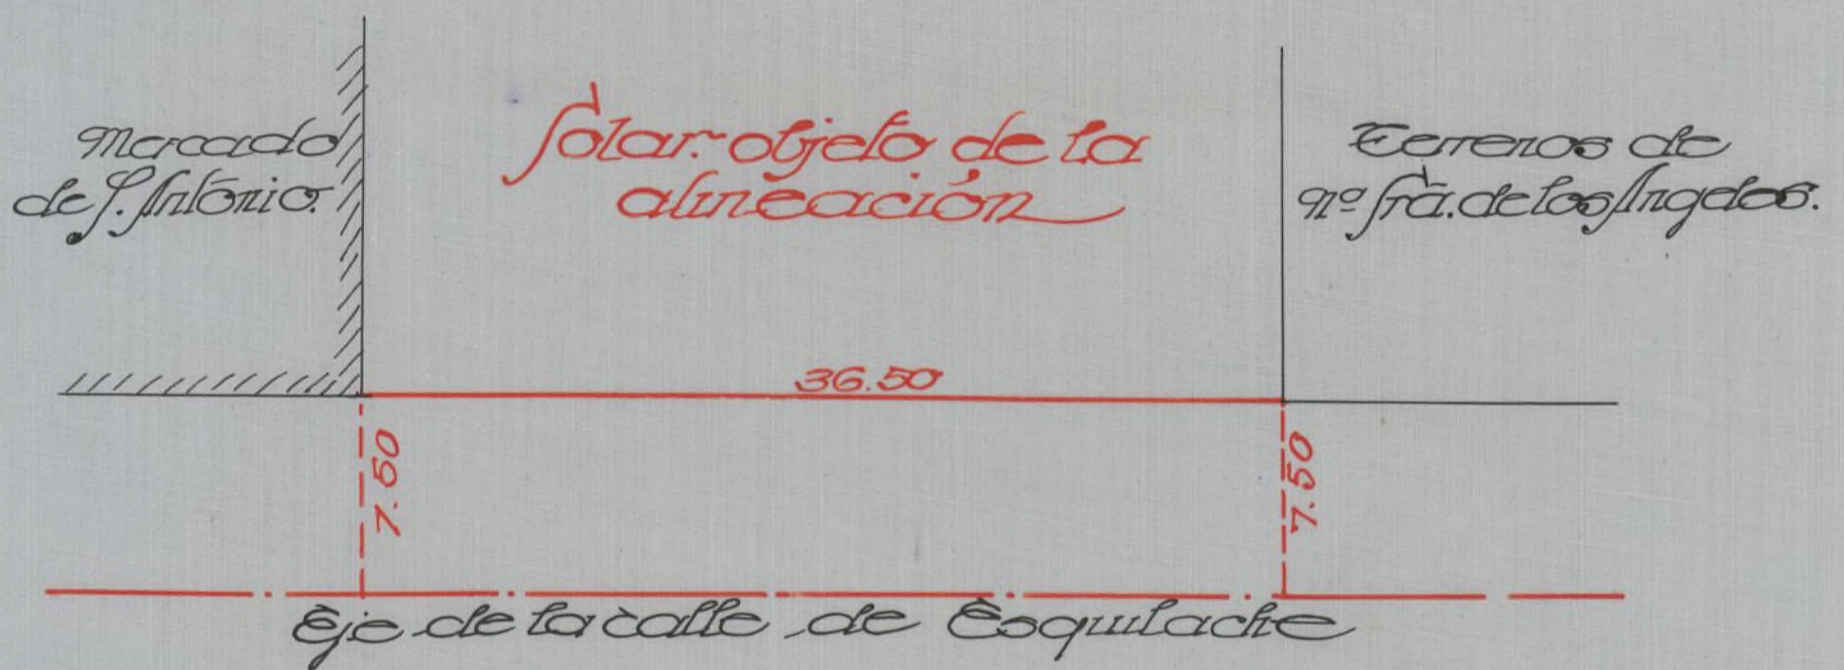 Mercado
de S. António.
Solar objeto de la
alineación
Terrenos de
Nª Srã. de los Angeles.
36.50
7.50
7.50
Eje de la calle de Esquilache